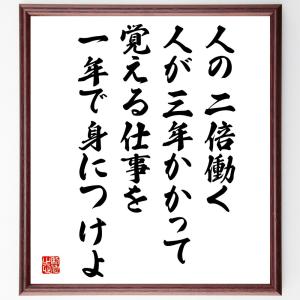 人の二倍働く
人が三年かかって
覚える仕事を
一年で身につけよ